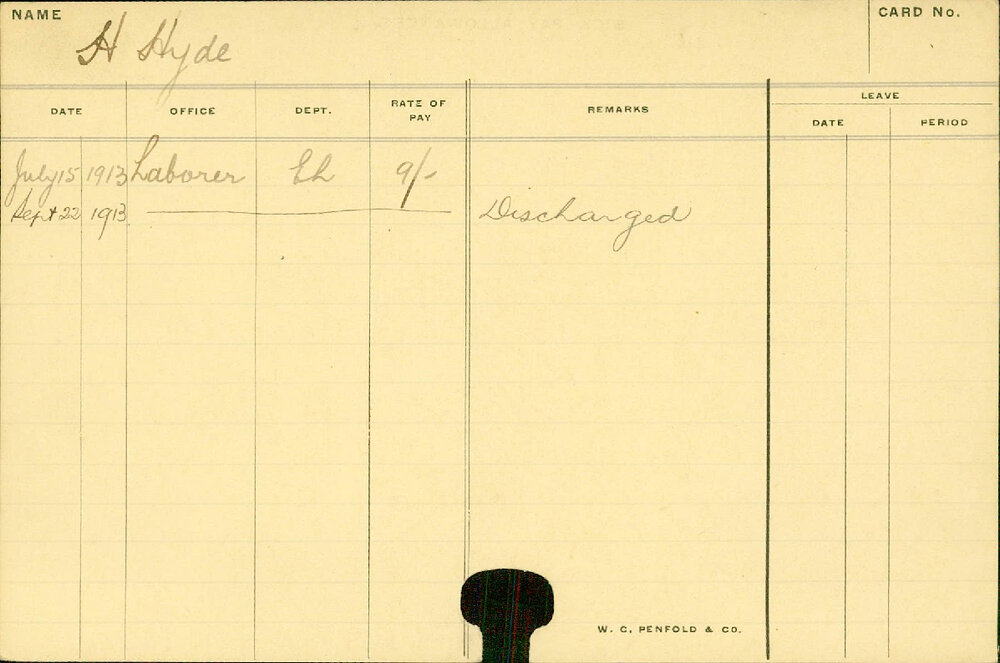 NAME
H Hyde
CARD No.
DATE OFFICE DEPT. RATE OF PAY REMARKS LEAVE
DATE PERIOD
July 15 1913 Laborer 9/-
Sept 22 1913 Discharged
W. C. PENFOLD & CO.